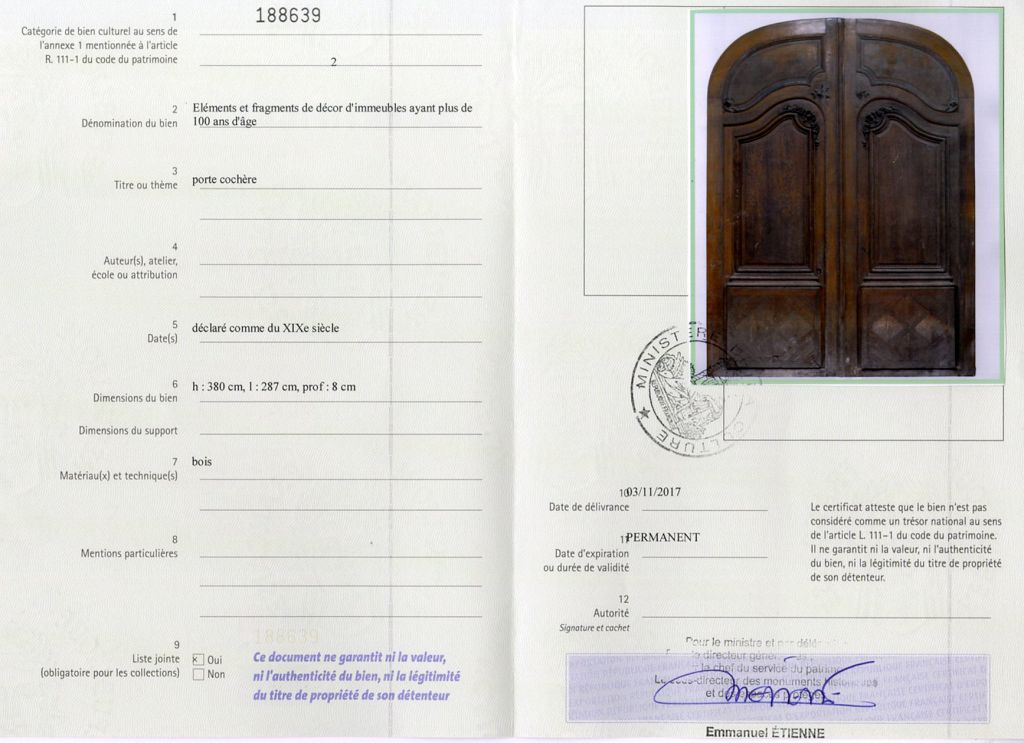 188639
1
Catégorie de bien culturel au sens de
l'annexe 1 mentionnée à l'article
R. 111-1 du code du patrimoine
2
2
Dénomination du bien
Eléments et fragments de décor d'immeubles ayant plus de
100 ans d'âge
3
Titre ou thème
porte cochère
4
Auteur(s), atelier,
école ou attribution
5
Date(s)
déclaré comme du XIXe siècle
6
Dimensions du bien
h : 380 cm, l : 287 cm, prof : 8 cm
Dimensions du support
7
Matériau(x) et technique(s)
bois
8
Mentions particulières
9
Liste jointe
(obligatoire pour les collections)
x Oui
Non
188639
Ce document ne garantit ni la valeur,
ni l'authenticité du bien, ni la légitimité
du titre de propriété de son détenteur
MINISTÈRE
CULTURE
10
Date de délivrance
03/11/2017
11
Date d'expiration
ou durée de validité
PERMANENT
12
Autorité
Signature et cachet
Le certificat atteste que le bien n'est pas
considéré comme un trésor national au sens
de l'article L. 111-1 du code du patrimoine.
Il ne garantit ni la valeur, ni l'authenticité
du bien, ni la légitimité du titre de propriété
de son détenteur.
Pour le ministre et par
le directeur
la chef du service du
Le sous-directeur des monuments historiques
et des
Emmanuel ÉTIENNE